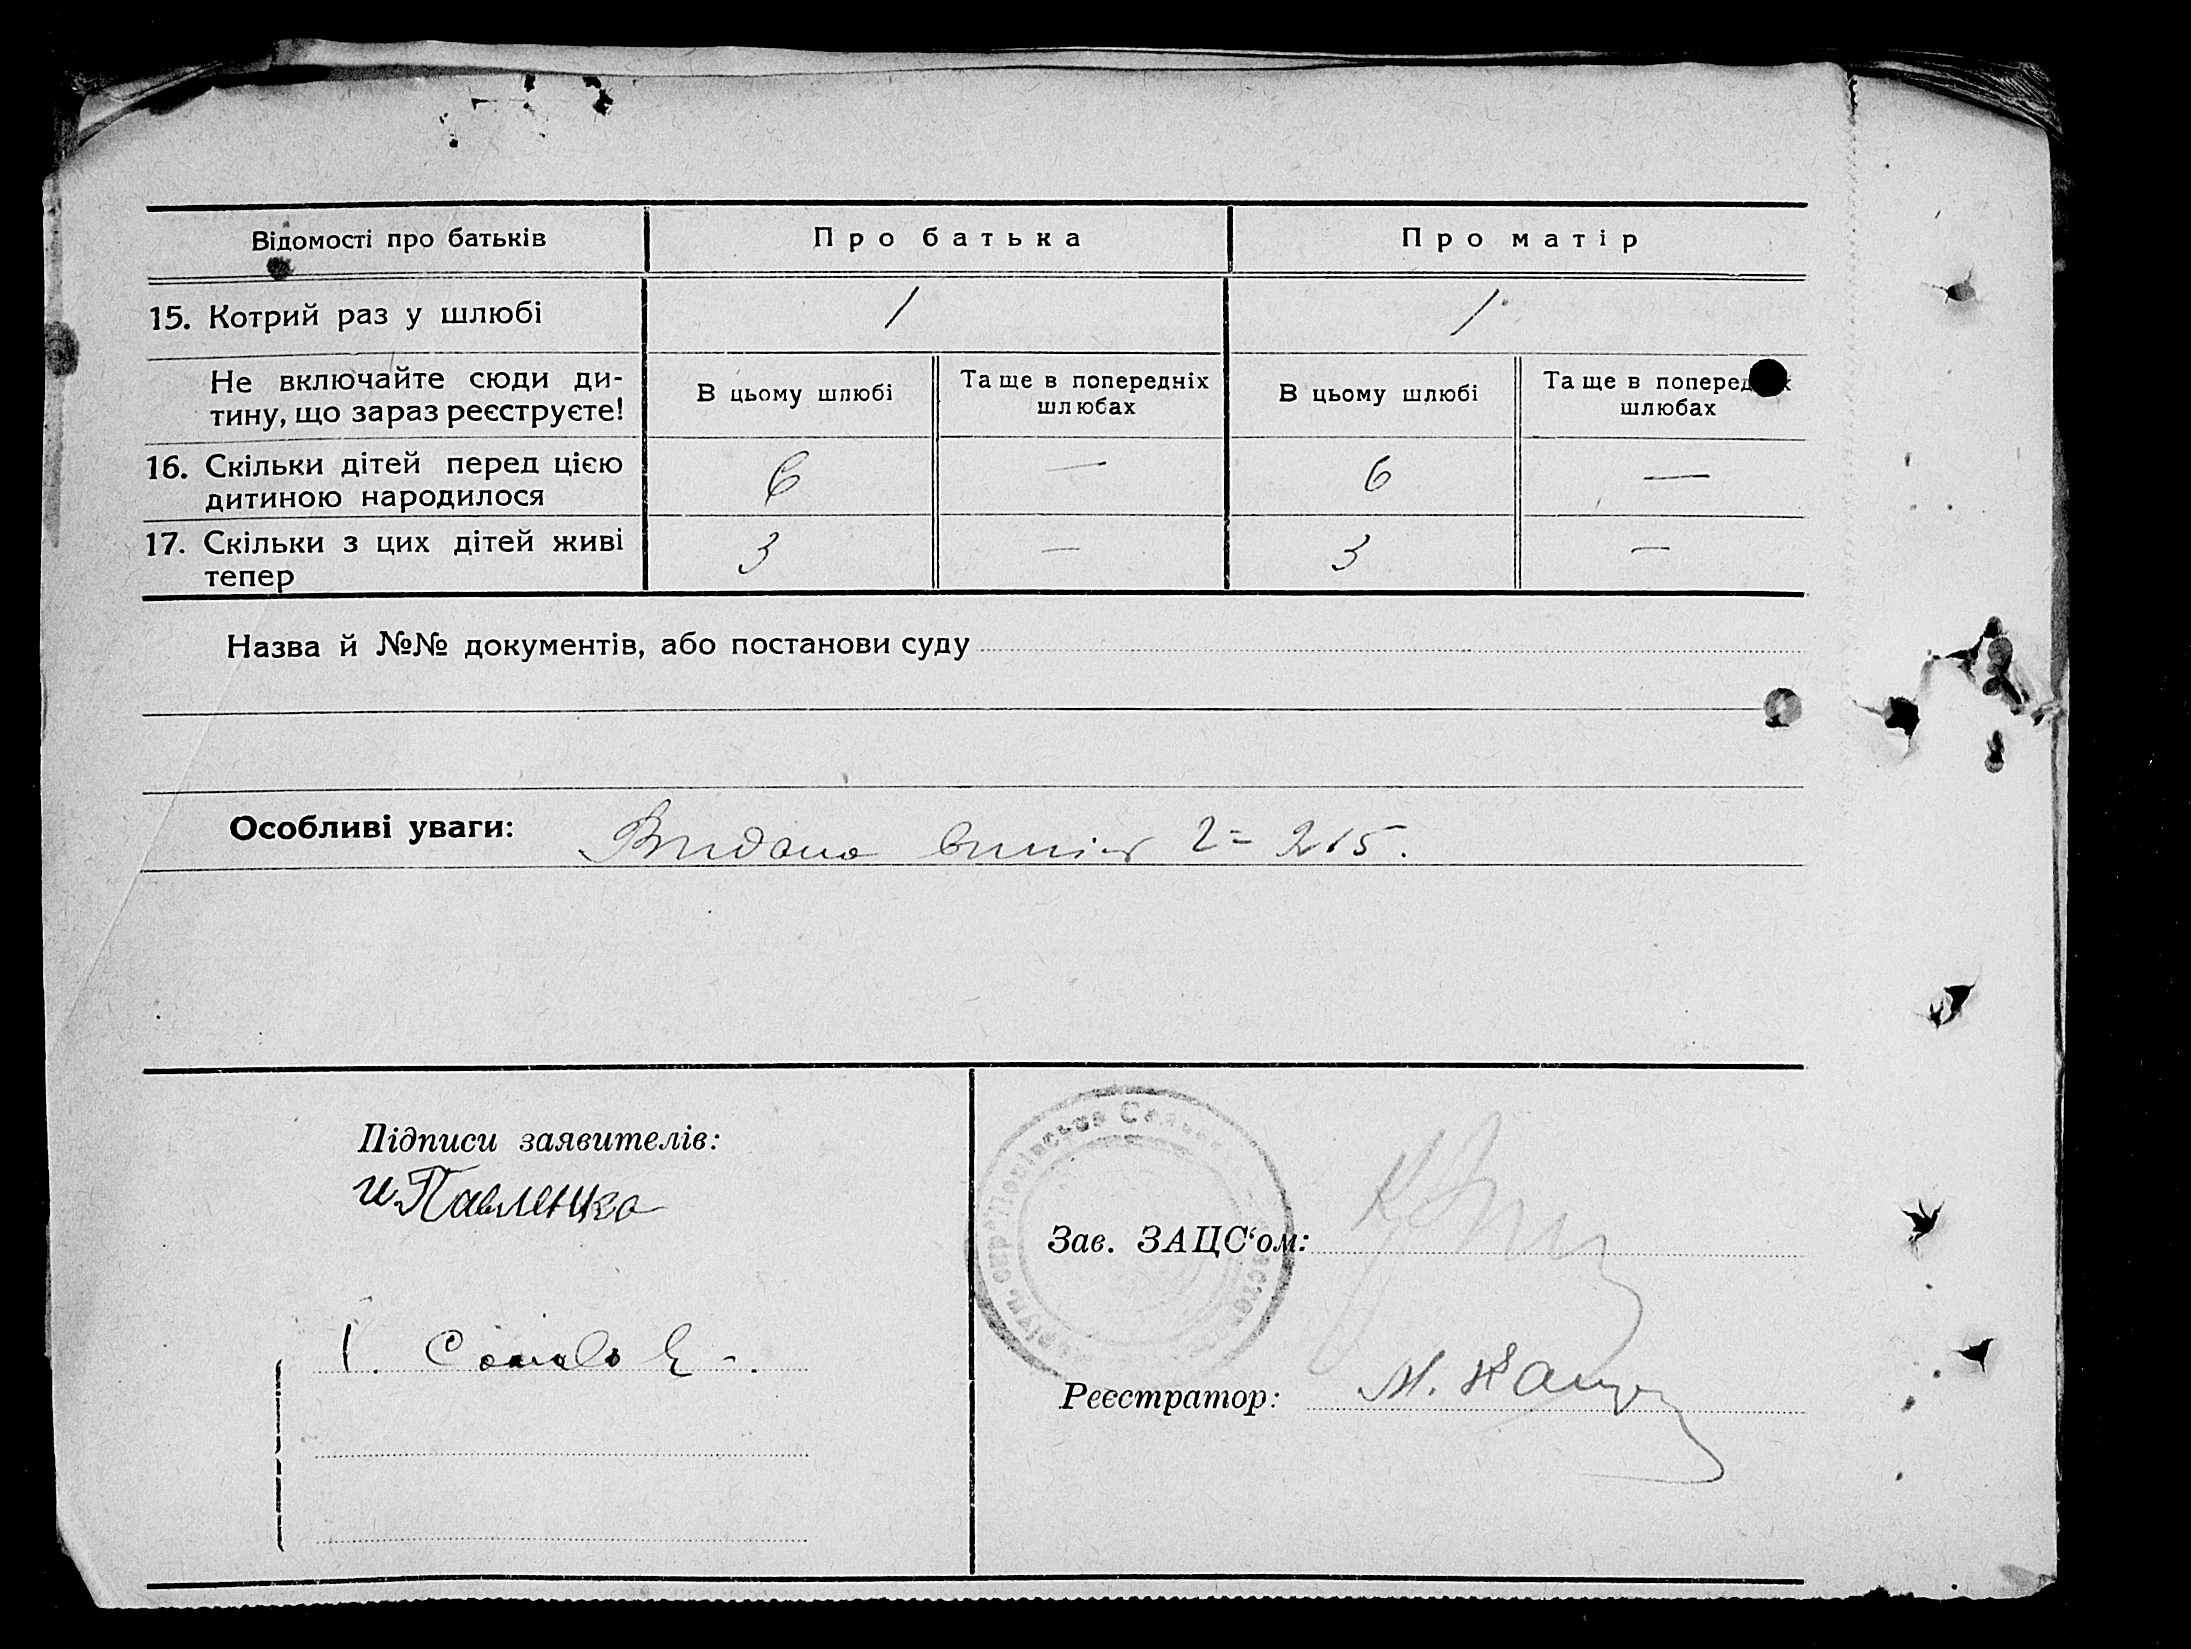 Відомості про батьків
Про батька
Про матір
15. Котрий раз у шлюбі
1
1
Не включайте сюди ди-
тину, що зараз реєструєте!
В цьому шлюбі
Та ще в попередніх
шлюбах
В цьому шлюбі
Та ще в
шлюбах
16. Скільки дітей перед цією
дитиною народилося
6
—
6
—
17. Скільки з цих дітей живі
тепер
3
—
3
—
Назва й №№ документів, або постанови суду
Особливі уваги:
Видано 215.
Підписи заявителів:
и Павленко
1.
Зав. ЗАЦС‘ом:
Реєстратор:
М.